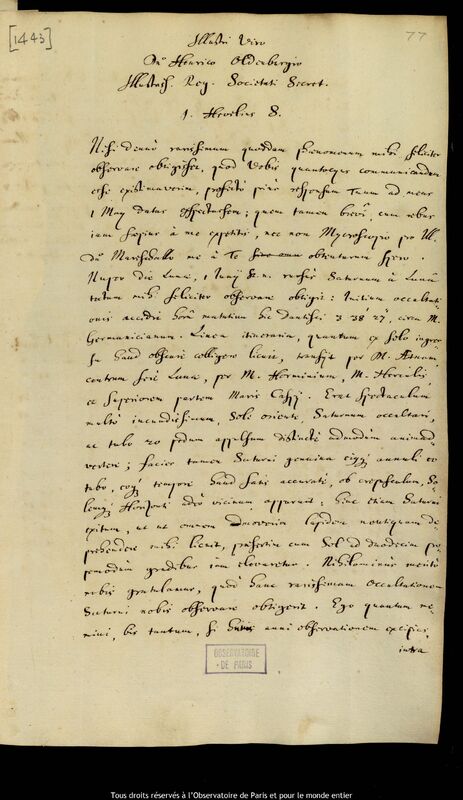 [1443]
77
Illustri Viro
Dn. Henrico Oldenburgio
Illustriss. Reg. Societati Secret.
J. Hevelius S.
Nisi denuò rarissimum quoddam phaenomenum mihi feliciter
observare obtigisset, quod Vobis quantocyus communicandum
esse existimaverim, profectò priùs responsum Tuum ad meas
1 May datas expectassem; quem tamen brevì, cum rebus
iam saepius à me expetitis, nec non Mycroscopio pro Ill.
Dn. Mareschallo me à Te obtenturum spero.
Nuper die Lunae, 1 Junij st. n. rursùs Saturnum à Lunâ
tectum mihi feliciter observare obtigit: Initium occultati-
onis accidit horâ matutinâ hic Dantisci 3 38' 27", circa M.
Germanicianum. Linea itineraria, quantum ex solo ingres-
su haud obscurè colligere licuit, transijt per M.
centrum ferè Lunae, per M. Herminium, M. Herculis,
et Superiorem partem Maris Caspij. Erat spectaculum
multò iucundissimum, Sole oriente, Saturnum occultari,
ac tubo 20 pedum appulsum distinctè admodum animad-
vertere; facies tamen Saturni genuina eiusque annuli eo
tubo, eoque tempore haud satis accuratè, ob crepusculum, So-
lemque Horizonti adeò vicinum apparuit: hinc etiam Saturni
exitum, ut ut omnem moverim lapidem neutiquam de-
prehendere mihi licuit, praesertim cum Sol ad duodecim pro-
pemodùm gradibus iam elevaretur. Nihilominus meritò
nobis gratulamur, quòd hanc rarissimam occultationem
Saturni nobis observare obtigerit. Ego quantum me-
mini, bis tantum, si huius anni observationem excipias,
intra
OBSERVATOIRE
DE PARIS
Tous droits réservés à l'Observatoire de Paris et pour le monde entier